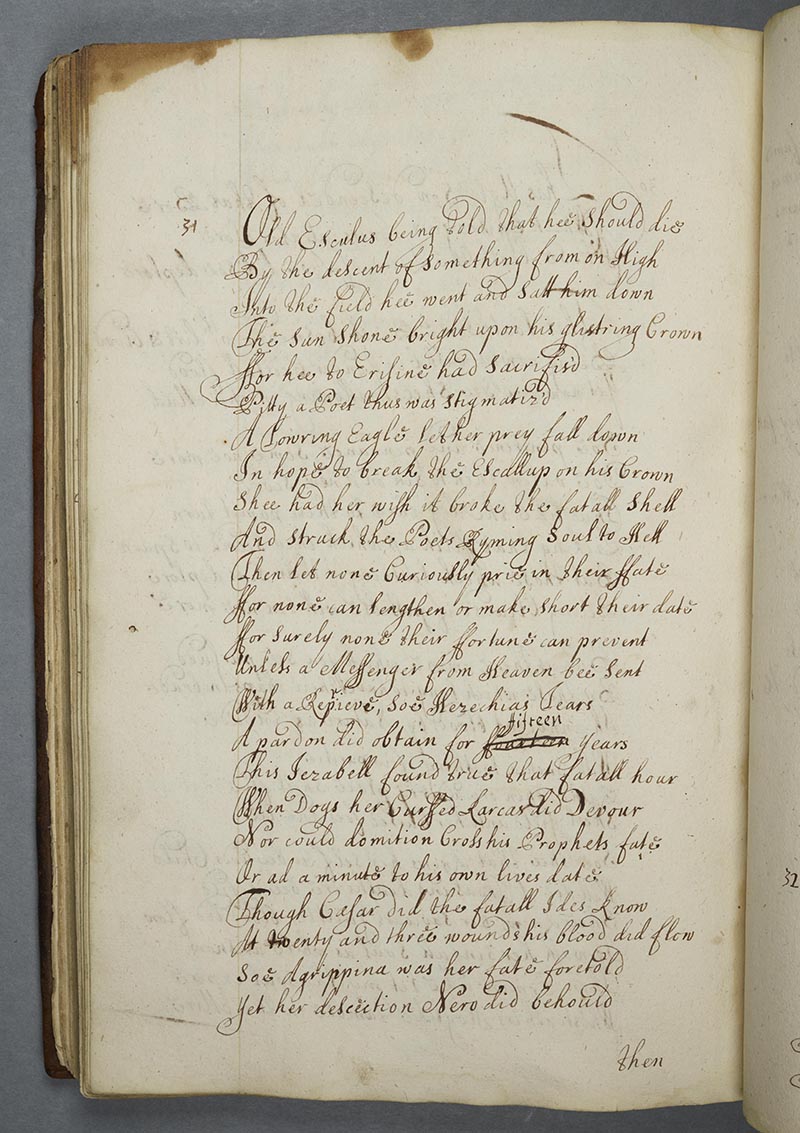 31
Old Esculus being told that hee should die
By the descent of something from on High
Into the field hee went and satt him down
The sun shone bright upon his glistring Crown
ffor hee to Erisine had sacrifis'd
Pitty a Poet thus was stigmatiz'd
A Towring Eagle let her prey fall down
In hope to break the Escallup on his Crown
Shee had her wish it broke the fatall shell
And struck the Poets Ryming Soul to Hell
Then let none Curiously prie in their ffate
ffor none can lengthen or make short their date
ffor surely none their ffortune can prevent
Unless a Messenger from Heaven bee sent
With a Reprieve, soe Hezechias Tears
A pardon did obtain for fifteen years
This Jezabell found true that fatall hour
When Dogs her Curssed Carcas did Devour
Nor could domition Cross his Prophets fate
Or ad a minute to his own lives date
Though Cæsar did the fatall Ides know
At twenty and three wounds his blood did flow
Soe Agrippina was her fate foretold
Yet her desection Nero did behould
then
32